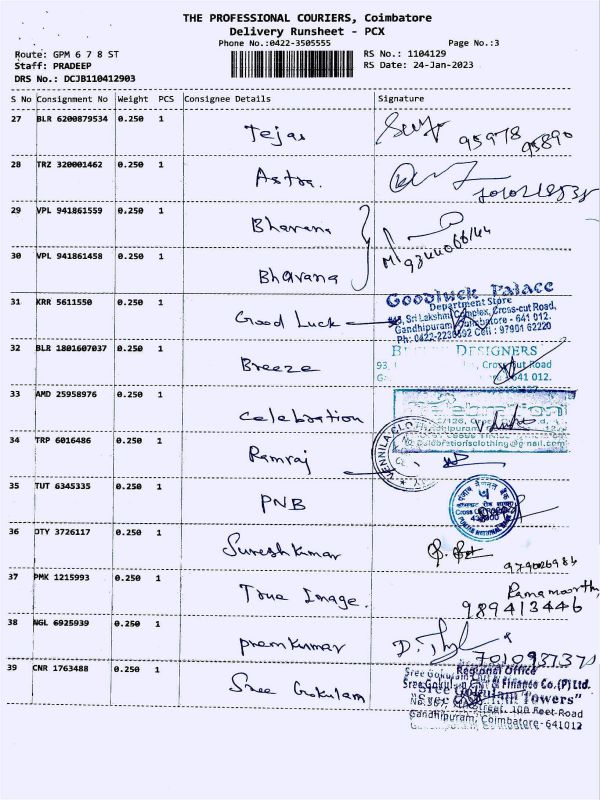 THE PROFESSIONAL COURIERS, Coimbatore
Delivery Runsheet - PCX
Phone No.:0422-3505555
Page No.:3
Route: GPM 6 7 8 ST
RS No.: 1104129
Staff: PRADEEP
RS Date: 24-Jan-2023
DRS No.: DCJB110412903
S No Consignment No Weight PCS Consignee Details Signature
27 BLR 6200879534 0.250 1 Tejas
95978 95890
28 TRZ 320001462 0.250 1 Astra.
29 VPL 941861559 0.250 1 Bharana
30 VPL 941861458 0.250 1 Bhavana
31 KRR 5611550 0.250 1 Good Luck
Goodluck Palace
Department Store
Sri Lakshmi Complex, Cross-cut Road,
Gandhipuram, Coimbatore - 641 012.
Cell : 97901 62220
32 BLR 1801607037 0.250 1 Breeze
DESIGNERS
93, Cross Cut Road
641 012.
33 AMD 25958976 0.250 1 Celebration
Celebration
34 TRP 6016486 0.250 1 Ramraj
VENNILA
35 TUT 6345335 0.250 1 PNB
36 OTY 3726117 0.250 1 Sureshkumar
37 PMK 1215993 0.250 1 True Image.
Ramamoorthy
989413446
38 NGL 6925939 0.250 1 premkumar
39 CNR 1763488 0.250 1 Sree Gokulam
Regional Office
Sree Gokulam Chit & Finance Co.(P) Ltd.
"Sree Gokulam Towers"
100 Feet Road
Gandhipuram, Coimbatore-641012